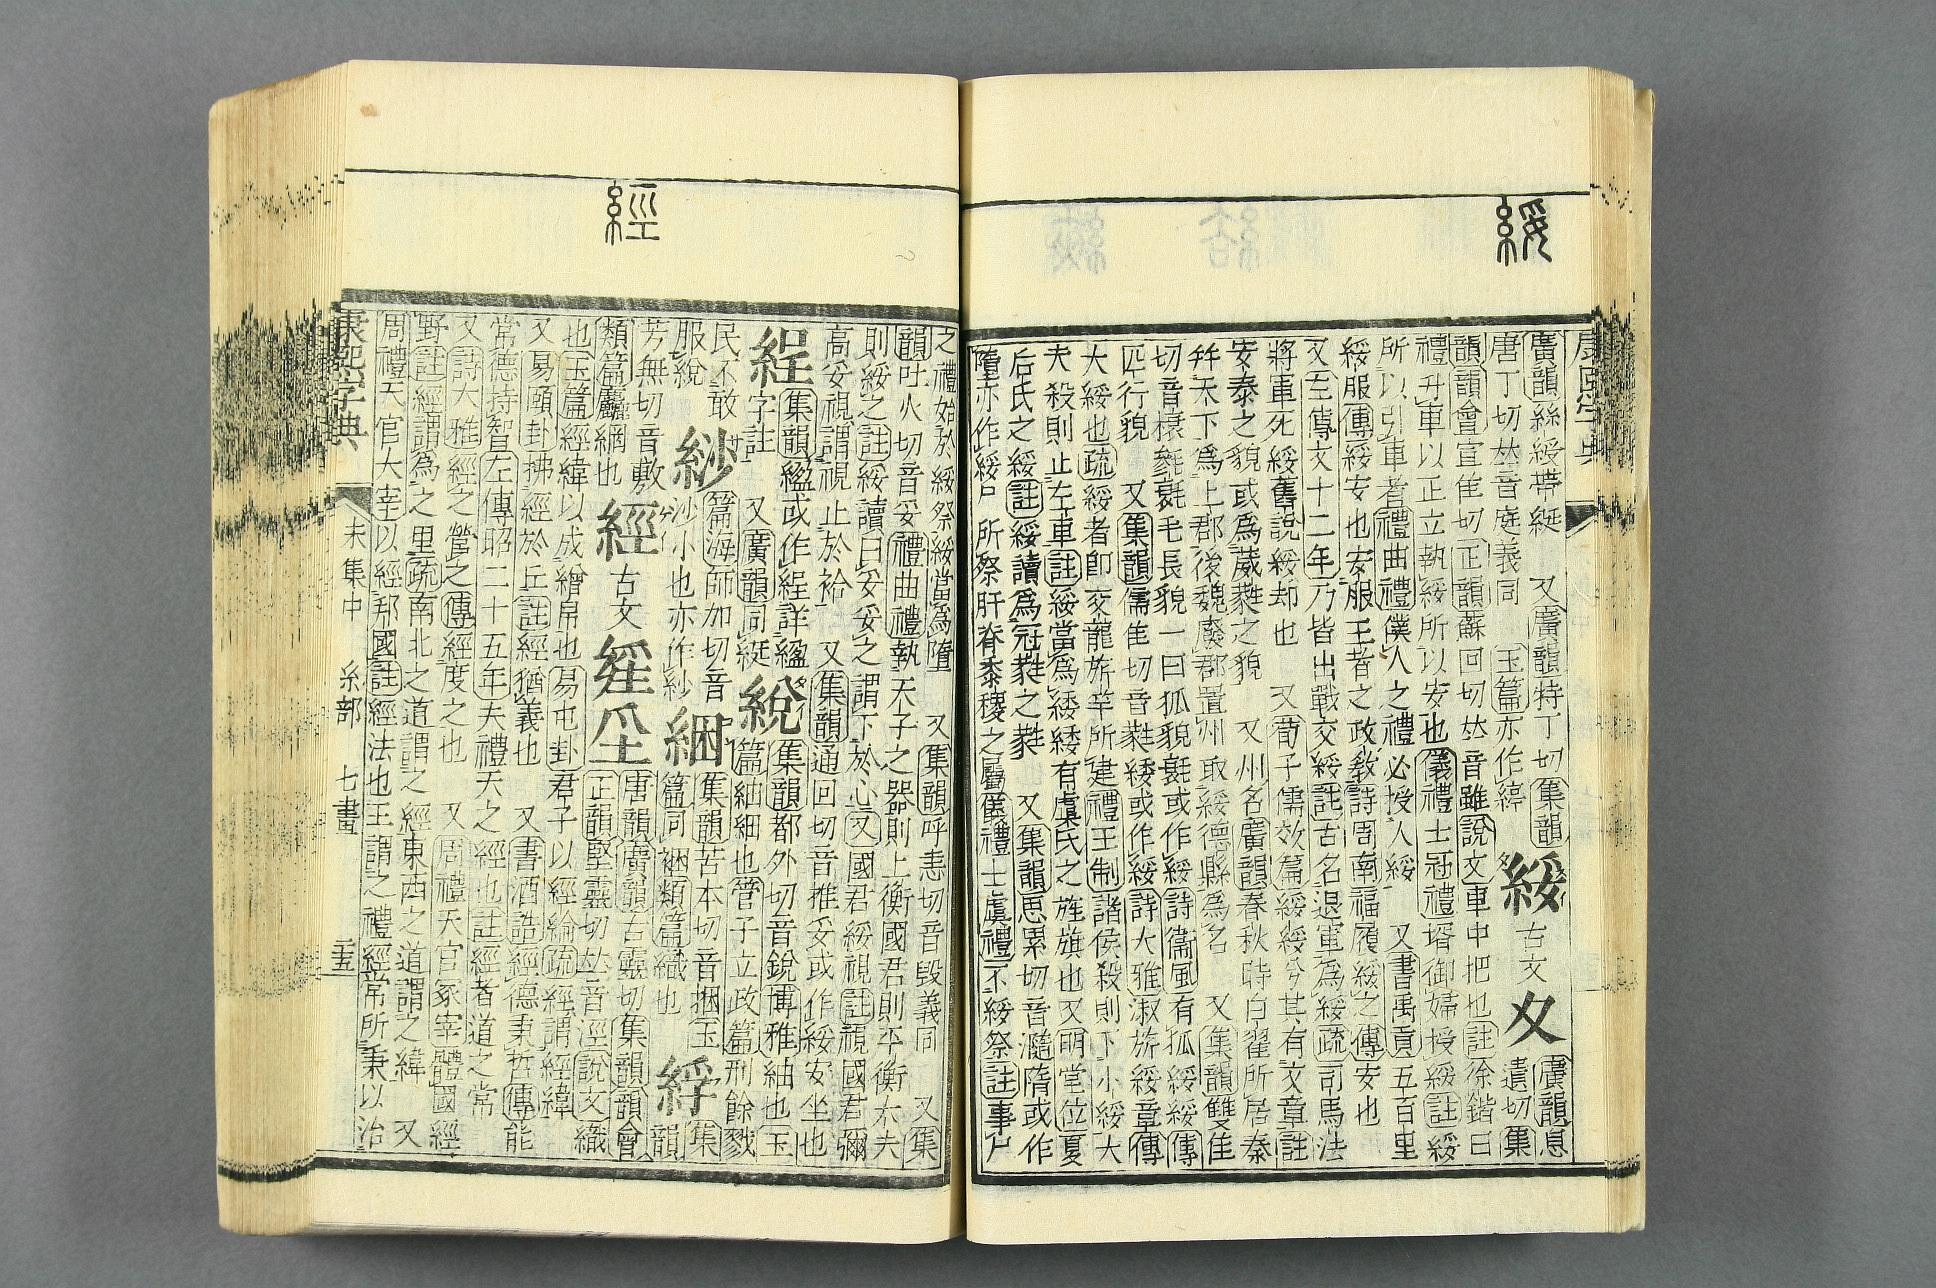 綏
康熙字典
廣韻絲綬帶綎　又廣韻特丁切集韻
唐丁切𠀤音庭義同　玉篇亦作綧
綏 古文 夊 廣韻息遺切集
韻韻會宣隹切正韻蘇回切𠀤音雖說文車中把也註徐鍇曰
禮升車以正立執綏所以安也儀禮士冠禮壻御婦授綏註綏
所以引車者禮曲禮僕人之禮必授人綏　又書禹貢五百里
綏服傳綏安也安服王者之政敎詩周南福履綏之傳安也
又左傳文十二年乃皆出戰交綏註古名退軍爲綏疏司馬法
將軍死綏舊說綏却也　又荀子儒效篇綏綏兮其有文章註
安泰之貌或爲葳蕤之貌　又州名廣韻春秋時白翟所居秦
幷天下爲上郡後魏廢郡置州取綏德縣爲名　又集韻雙隹
切音榱毵毿毛長貌一曰狐貌毿或作綏詩衞風有狐綏綏傳
匹行貌　又集韻儒隹切音蕤緌或作綏詩大雅淑旂綏章傳
大綏也疏綏者卽交龍旂竿所建禮王制諸侯殺則下小綏大
夫殺則止左車註綏當爲緌緌有虞氏之旌旗也又明堂位夏
后氏之綏註綏讀爲冠蕤之蕤　又集韻思累切音瀡隋或作
隋亦作綏 所祭肝脊黍稷之屬儀禮士虞禮不綏祭註事尸
之禮始於綏祭綏當爲墮　又集韻呼恚切音毀義同　又集
韻吐火切音妥禮曲禮執天子之器則上衡國君則平衡大夫
則綏之註綏讀曰妥妥之謂下於心又國君綏視註視國君彌
高妥視謂視止於袷　又集韻通回切音推妥或作綏安坐也
䋼 集韻緼或作䋼詳緼字註　又廣韻同綎
綐 集韻都外切音銳博雅紬也玉篇紬細也管子立政篇刑餘戮
民不敢服綐
䋾 篇海師加切音沙小也亦作紗
綑 集韻苦本切音捆玉篇同裍類篇織也
綒 集韻芳無切音敷類篇麤綢也
經 古文 𦀇 坙 唐韻廣韻古靈切集韻韻會
正韻堅靈切𠀤音涇說文織
也玉篇經緯以成繒帛也易屯卦君子以經綸疏經謂經緯
又易頤卦拂經於丘註經猶義也　又書酒誥經德秉哲傳能
常德持智左傳昭二十五年夫禮天之經也註經者道之常
又詩大雅經之營之傳經度之也　又周禮天官冢宰體國經
野註經謂爲之里疏南北之道謂之經東西之道謂之緯　又
周禮天官大宰以經邦國註經法也王謂之禮經常所秉以治
經
康熙字典 未集中 糸部 七畫 二十五